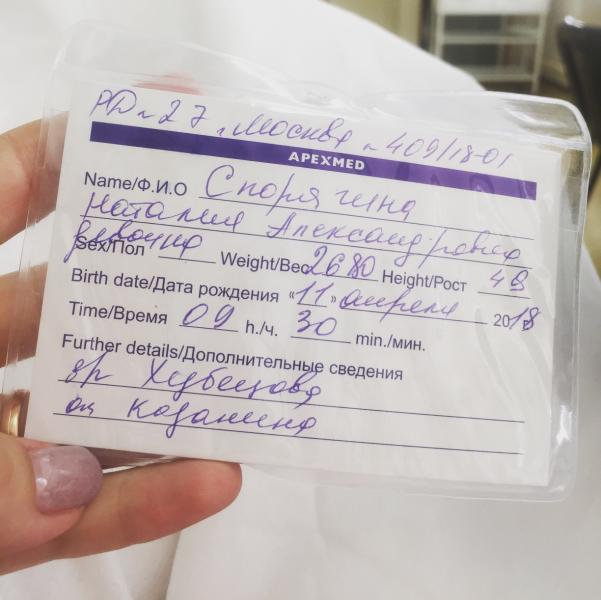 РД № 27 г. Москва № 409/18-01
APEXMED
Name/Ф.И.О Спорягина
Наталия Александровна
девочка
Sex/Пол Weight/Вес 2680 Height/Рост 48
Birth date/Дата рождения «11» апреля 2018
Time/Время 09 h./ч. 30 min./мин.
Further details/Дополнительные сведения
вр Хубецова
ак Казанина